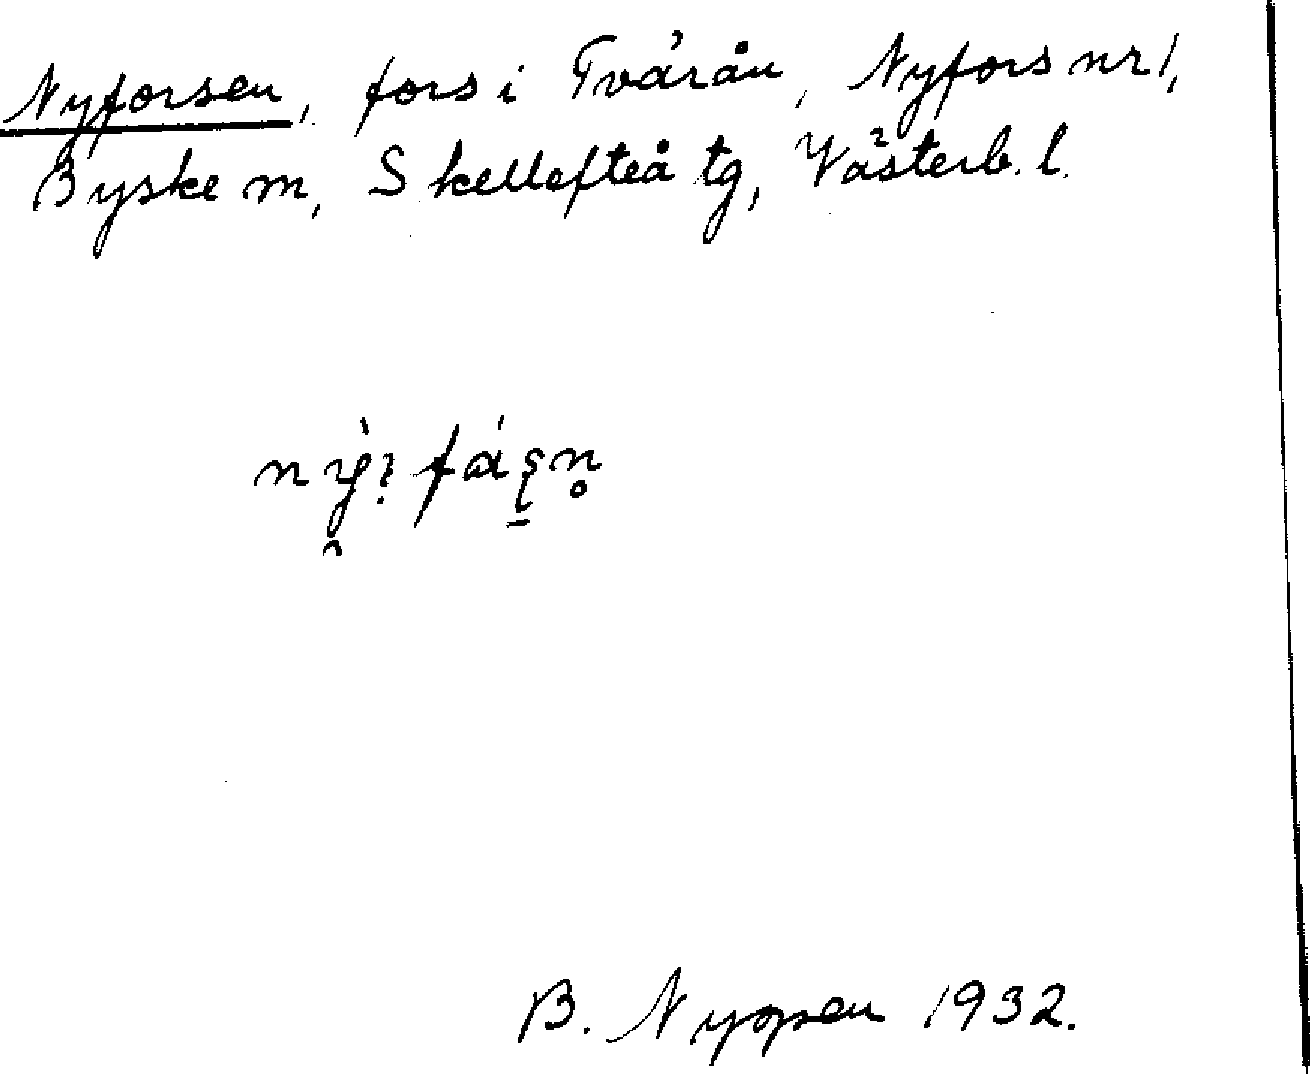 Nyforsen, fors i Tvärån, Nyfors nr 1,
Byske m, Skellefteå tg, Västerb. l.
B. Nygren 1932.